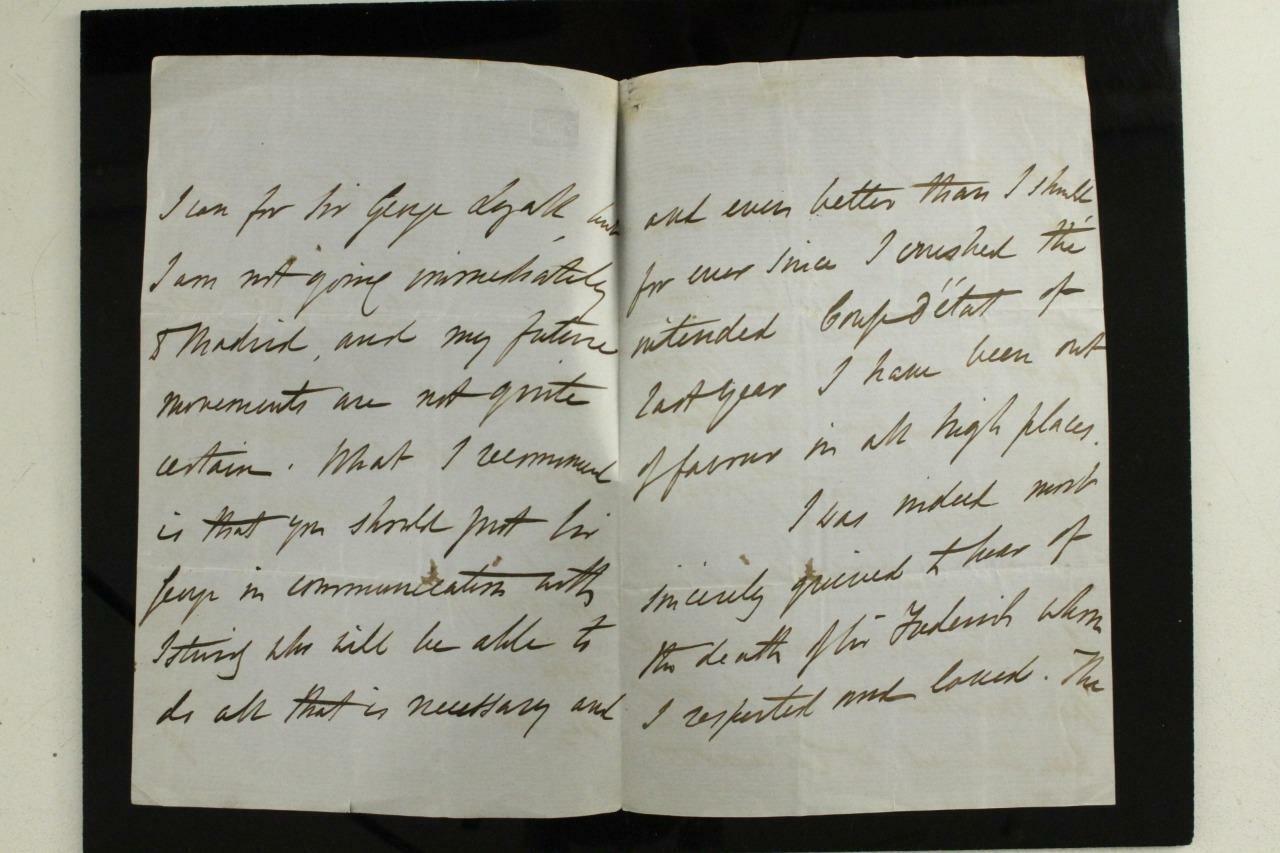 I can for Sir George Lyall, but
I am not going immediately
to Madrid, and my future
movements are not quite
certain. What I recommend
is that you should put Sir
George in communication with
who will be able to
do all that is necessary and
and even better than I should
for ever since I crushed the
intended Coup D'état of
last year I have been out
of favour in all high places.
I was indeed most
sincerely grieved to hear of
the death of Sir Frederick whom
I respected and loved. The